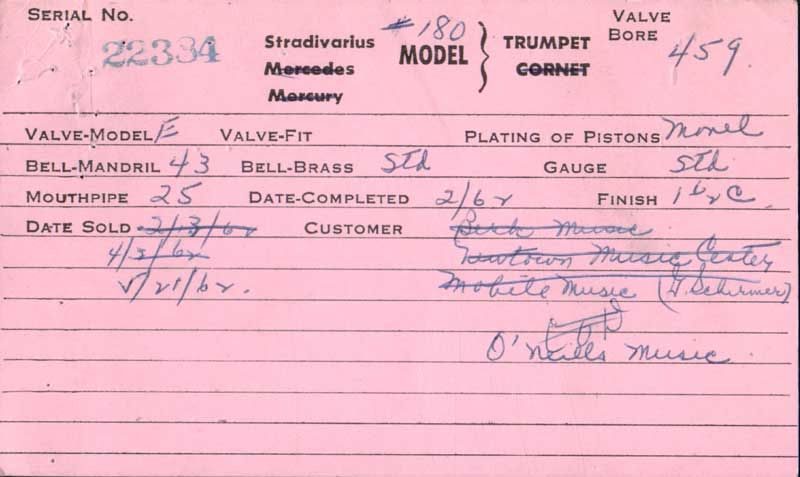 SERIAL No. 22334 Stradivarius #180 MODEL } TRUMPET VALVE BORE 459
Mercedes CORNET
Mercury
VALVE-MODEL E VALVE-FIT PLATING OF PISTONS Monel
BELL-MANDRIL 43 BELL-BRASS Std GAUGE Std
MOUTHPIPE 25 DATE-COMPLETED 2/62 FINISH
DATE SOLD 2/13/62 CUSTOMER Music
4/2/62 Newtown Music Center
5/21/62. Mobile Music (G. Schirmer)
O'Neills Music